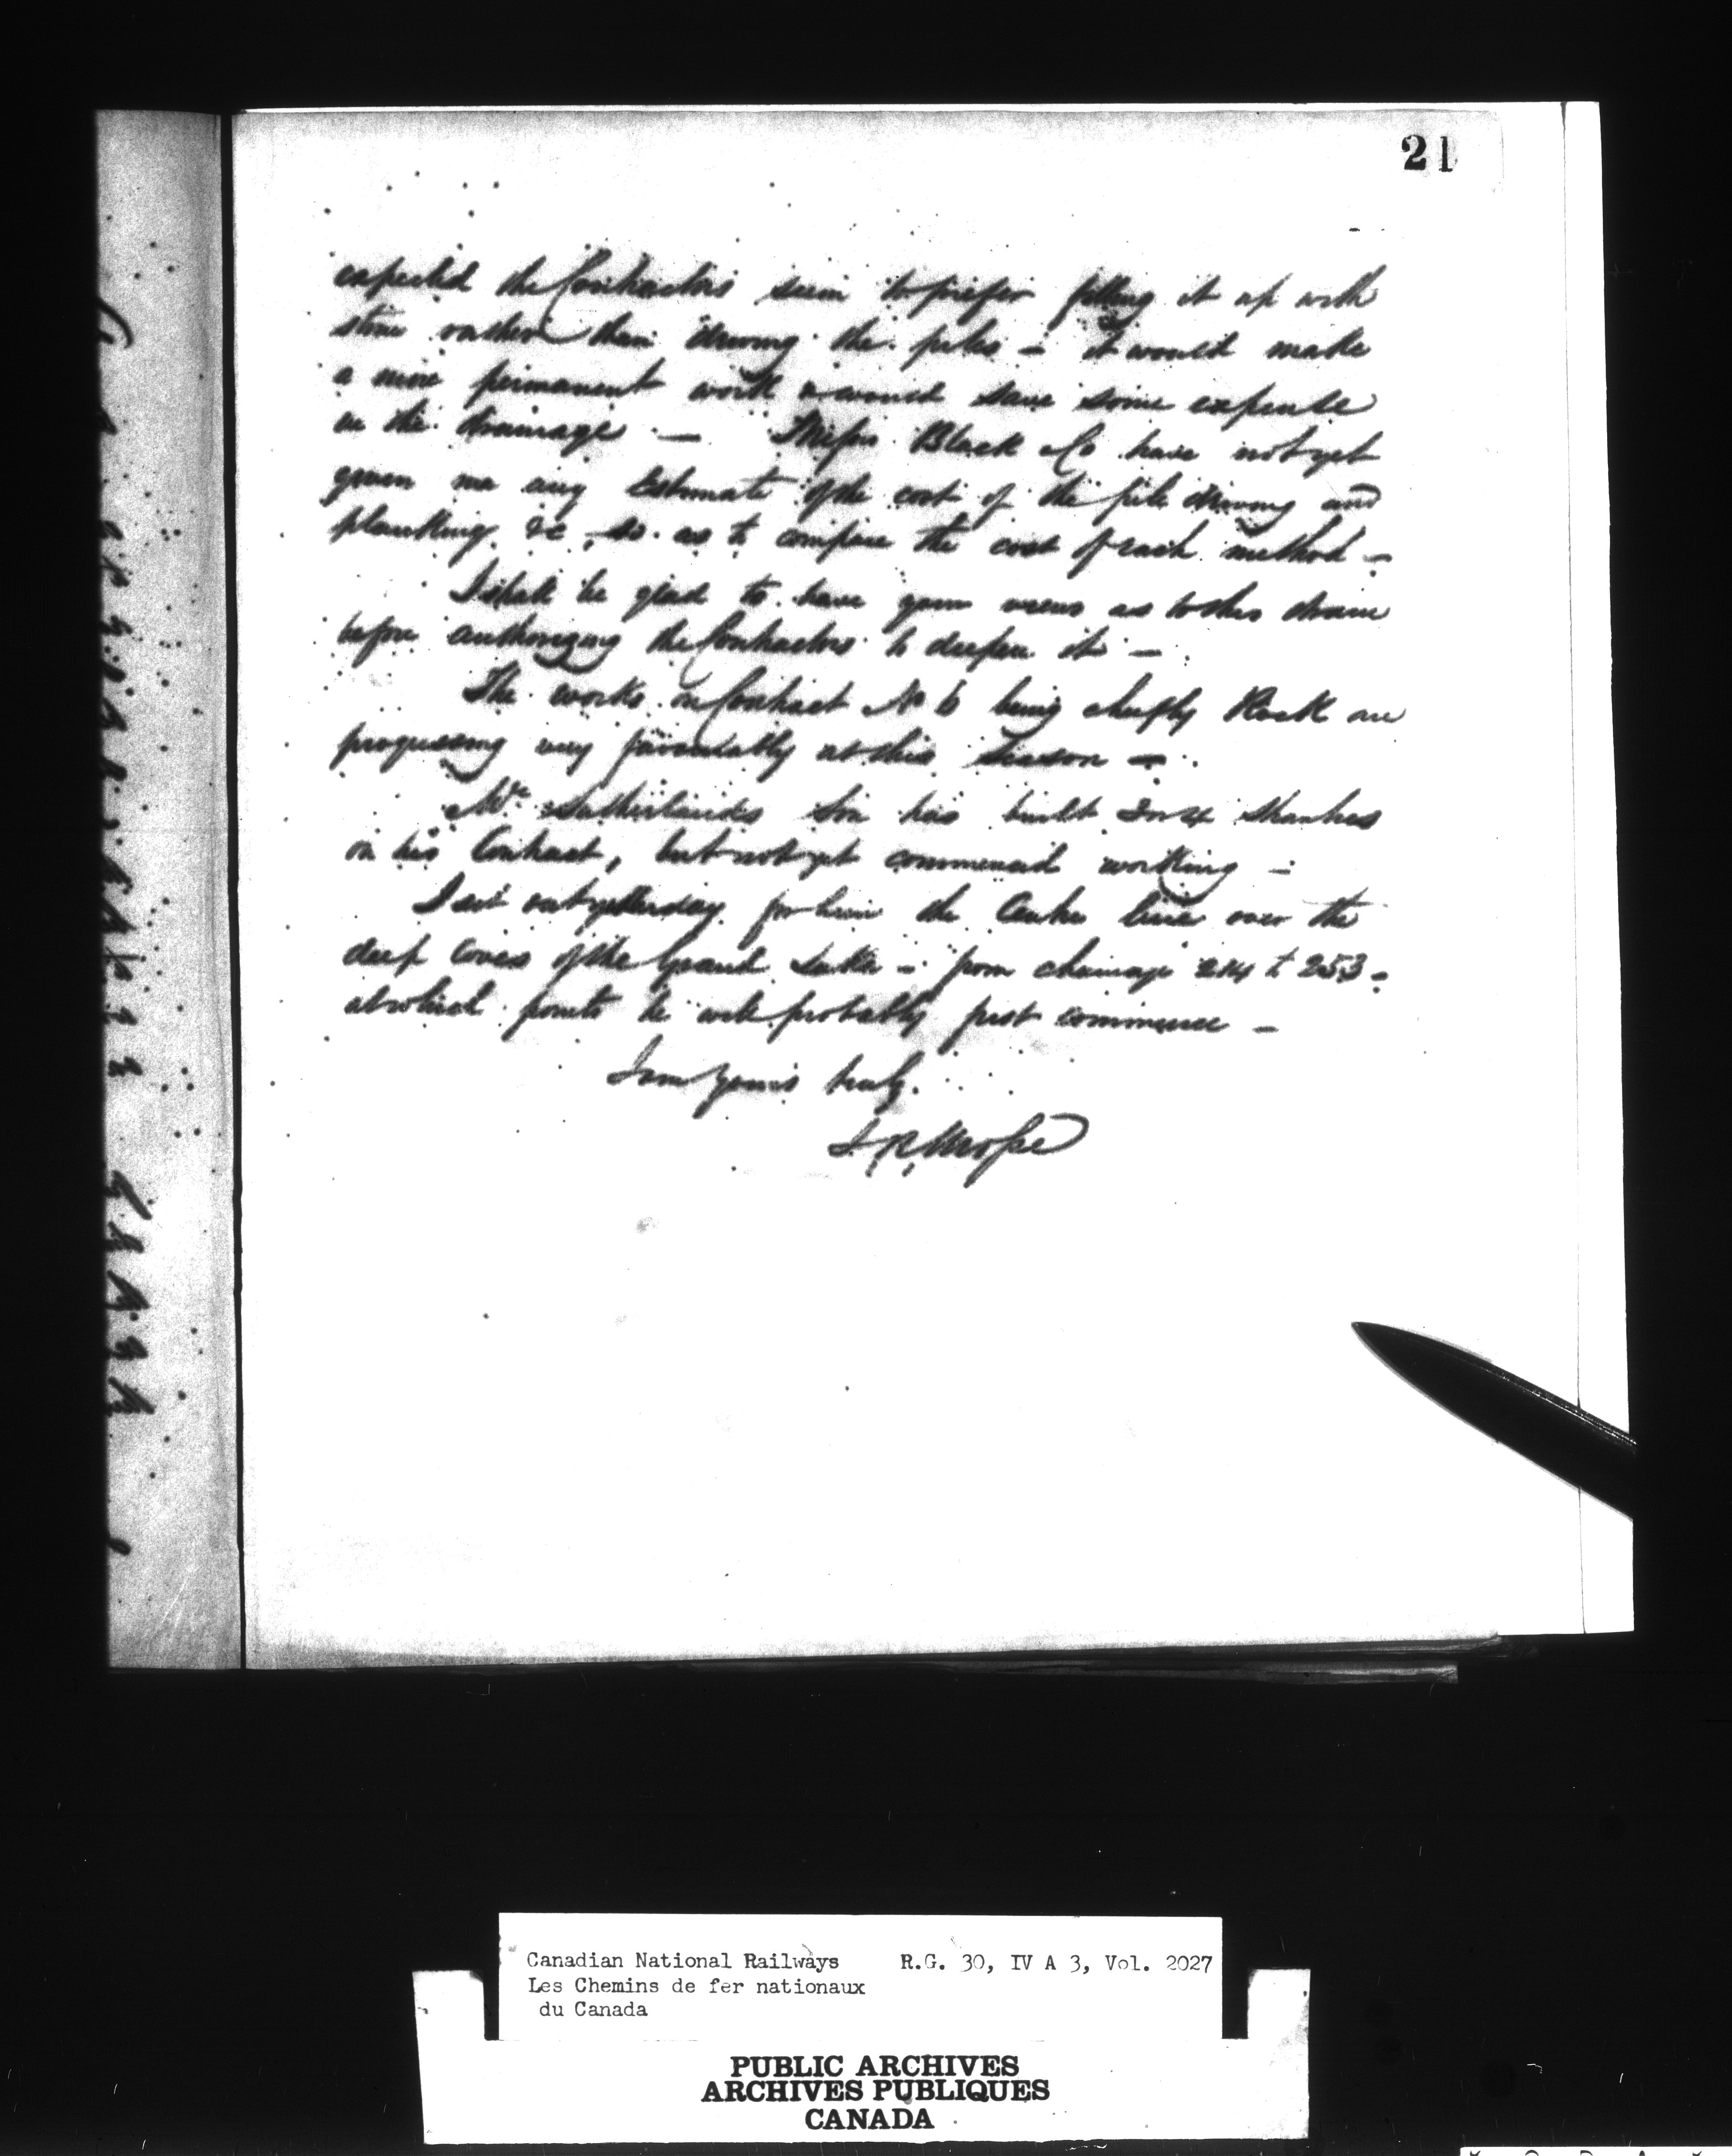 21
expected the Contractors seem to prefer filling it up with
stone rather than driving the piles – it would make
a more permanent work & would save some expense
in the drainage — Messrs Black & Co have not yet
given me any Estimate of the cost of the pile driving and
planking &c, so as to compare the cost of each method –
I shall be glad to have your views as to this drain
before authorizing the Contractors to deepen it –
The works on Contract No 6 being chiefly Rock are
progressing very favourably at this Season –
Mr Sutherlands Son has built 3 or 4 Shanties
on his Contract, but not yet commenced working –
I set out yesterday for him the Centre line over the
deep Coves of the Grand Lake – from chainage 214 to 253 –
at which points he will probably first commence –
I am Yours truly.
J.R. Mosse
Canadian National Railways R.G. 30, IV A 3, Vol. 2027
Les Chemins de fer nationaux
du Canada
PUBLIC ARCHIVES
ARCHIVES PUBLIQUES
CANADA